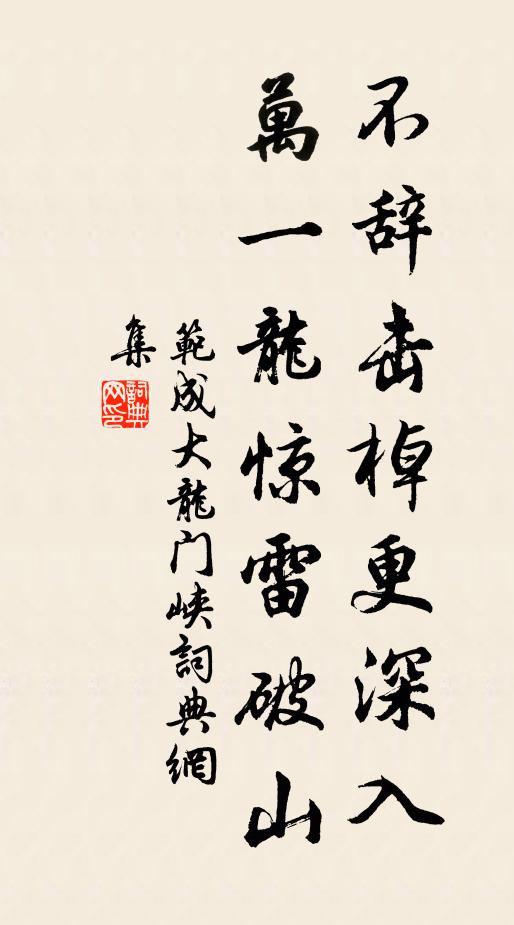 不辞击棹更深入
萬一龍惊雷破山
範成大龍门峡詞典網
集
詞典
网印